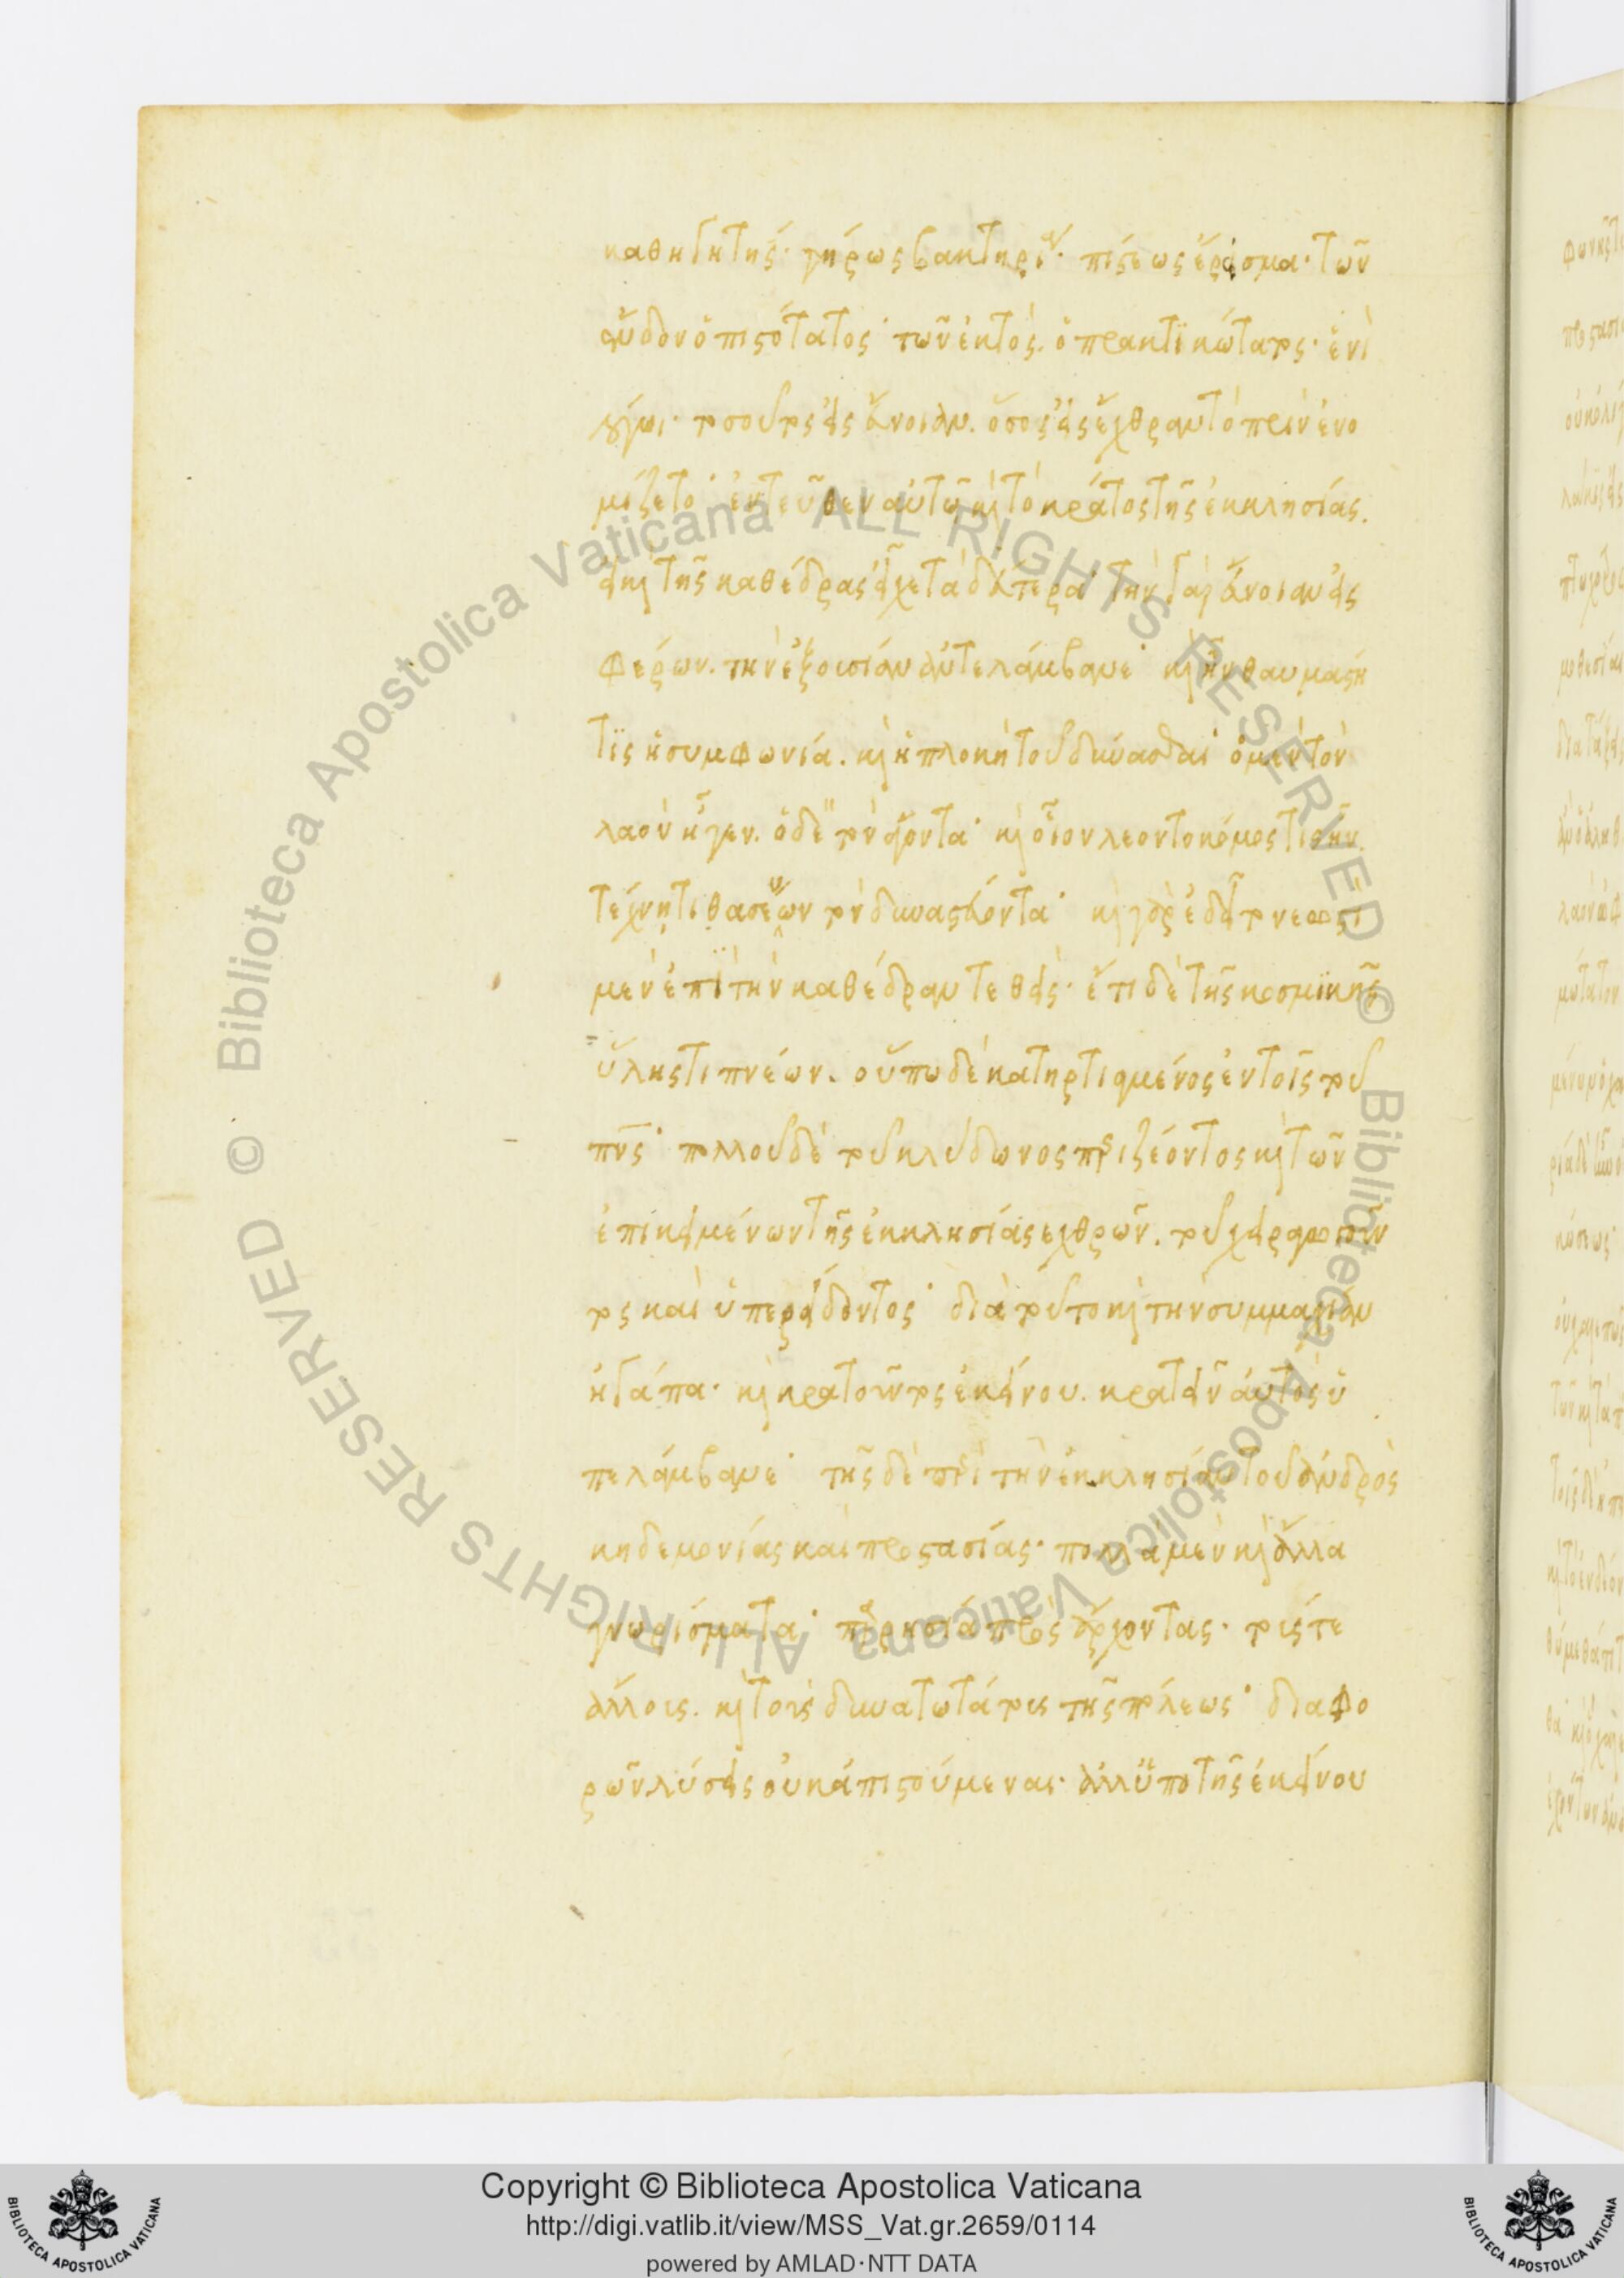 καθηγητής· γήρως βακτηρία· πίστεως ἔρεισμα· τῶν
ἔνδον ὁ πιστότατος· τῶν ἐκτὸς. ὁ πρακτϊκώτατος· ἑνὶ
λόγωι· τοσοῦτος εἰς εὔνοιαν. ὅσος εἰς ἔχθραν τὸ πρὶν ἐνο
μίζετο· ἐντεῦθεν αὐτῶ καὶ τὸ κράτος τῆς ἐκκλησίας.
εἰ καὶ τῆς καθέδρας εἶχε τὰ δεύτερα· τὴν γὰρ εὔνοιαν εἰς
φέρων. τὴν ἐξουσίαν ἀντελάμβανε· καὶ ἦν θαυμαστή
τϊς ἡ συμφωνία. καὶ ἡ πλοκὴ τοῦ δύνασθαι· ὁ μὲν τὸν
λαὸν ἦγεν. ὁ δὲ τὸν ἄγοντα· καὶ οἷον λεοντοκόμος τὶς ἦν.
τέχνη τιθασεύων τὸν δυναστεύοντα· καὶ γὰρ ἐδεῖτο νεωστὶ
μὲν ἐπὶ τὴν καθέδραν τεθεὶς· ἔτι δὲ τῆς κοσμϊκῆς
ὕλης τὶ πνέων. οὔπω δὲ κατηρτισμένος ἐν τοῖς τοῦ
πνς· πολλοῦ δὲ τοῦ κλύδωνος περιζέοντος καὶ τῶν
ἐπικειμένων τῆς ἐκκλησίας ἐχθρῶν. τοῦ χειραγωγοῦν
τος καὶ ὑπερείδοντος· διὰ τοῦτο καὶ τὴν συμμαχίαν
ἠγάπα· καὶ κρατοῦντος ἐκείνου. κρατεῖν αὐτὸς ὑ
πελάμβανε· τῆς δὲ περὶ τὴν ἐκκλησίαν τοῦ ἀνδρὸς
κηδεμονίας καὶ προστασίας· πολλὰ μὲν καὶ ἄλλα
γνωρίσματα· παρρησία πρὸς ἄρχοντας· τούς τε
ἄλλους. καὶ τοὺς δυνατωτάτους τῆς πόλεως· διαφο
ρῶν λύσεις οὐκ ἀπιστούμεναι· ἀλλ' ὑπο τῆς ἐκείνου
Copyright © Biblioteca Apostolica Vaticana
http://digi.vatlib.it/view/MSS_Vat.gr.2659/0114
powered by AMLAD·NTT DATA
Biblioteca Apostolica Vaticana ALL RIGHTS RESERVED ©
Biblioteca Apostolica Vaticana ALL RIGHTS RESERVED ©
BIBLIOTECA APOSTOLICA VATICANA
BIBLIOTECA APOSTOLICA VATICANA